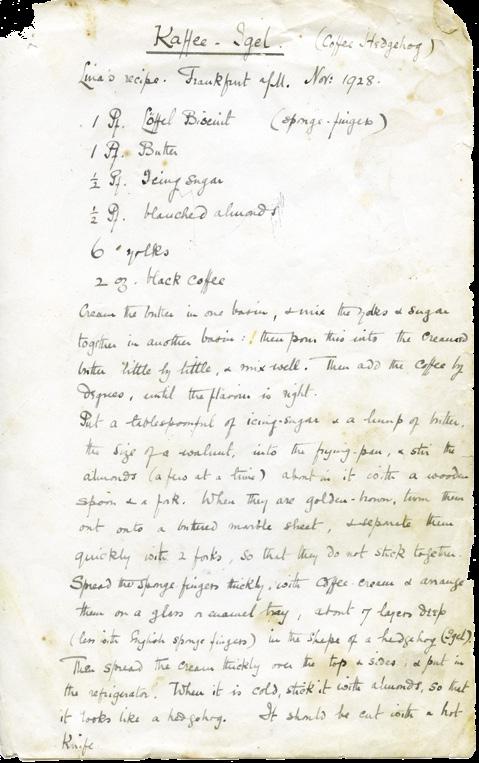 Kaffee - Igel. (Coffee Hedgehog)
Lina's recipe. Frankfurt a/M. Nov: 1928.
1 Pf. Löffel Biscuit (sponge-fingers)
1 Pf. Butter
½ Pf. Icing sugar
½ Pf. blanched almonds
6 yolks
2 oz. black coffee
Cream the butter in one basin, & mix the yolks & sugar
together in another basin: then pour this into the creamed
butter little by little, & mix well. Then add the coffee by
degrees, until the flavour is right.
Put a tablespoonful of icing-sugar & a lump of butter,
the size of a walnut, into the frying-pan, & stir the
almonds (a few at a time) about in it with a wooden
spoon & a fork. When they are golden-brown, turn them
out onto a buttered marble sheet, & separate them
quickly with 2 forks, so that they do not stick together.
Spread the sponge-fingers thickly with coffee-cream & arrange
them on a glass or enamel tray, about 7 layers deep
(less with English sponge fingers) in the shape of a hedgehog (Egel).
Then spread the cream thickly over the top & sides, & put in
the refrigerator. When it is cold, stick it with almonds, so that
it looks like a hedgehog. It should be cut with a hot
Knife.